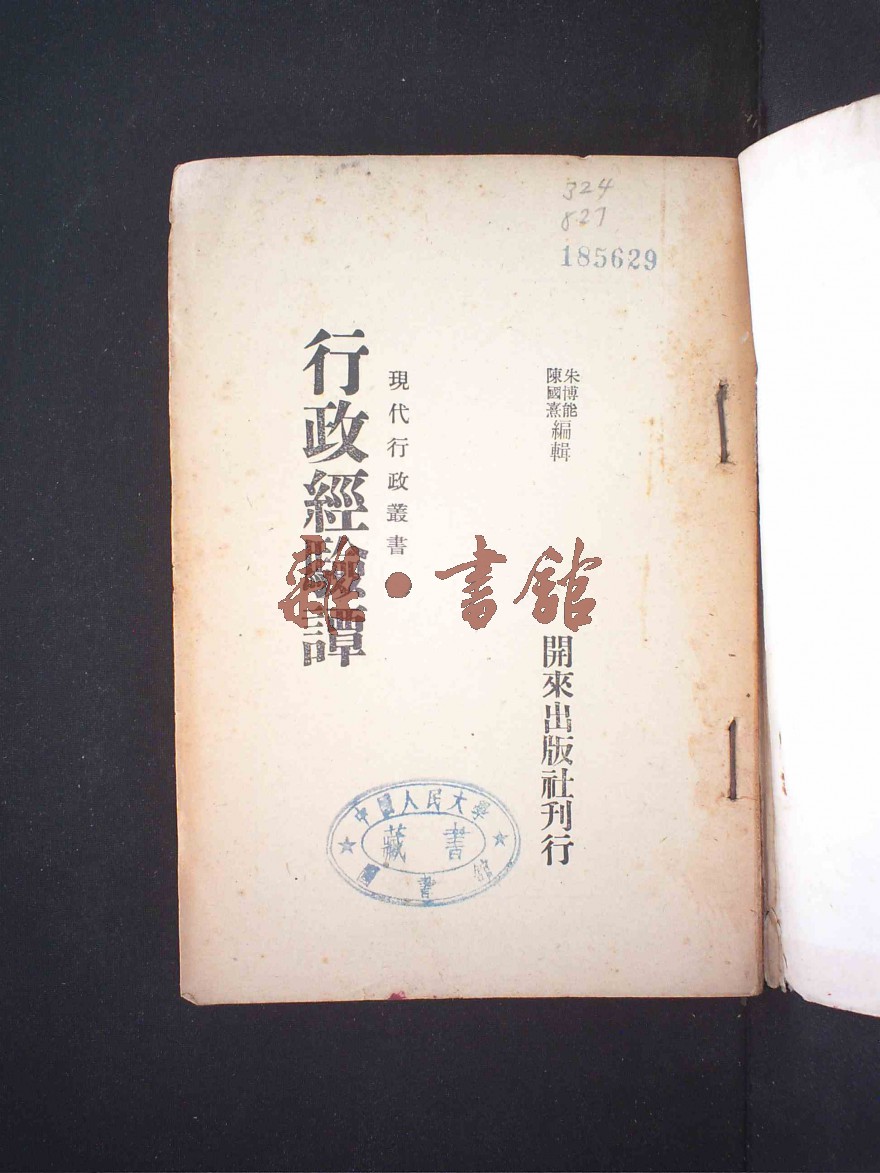 324
827
185629
朱博能
陳國熹
編輯
開來出版社刊行
現代行政叢書
行政經驗譚
雜·書館
中國人民大學
藏書
圖書館